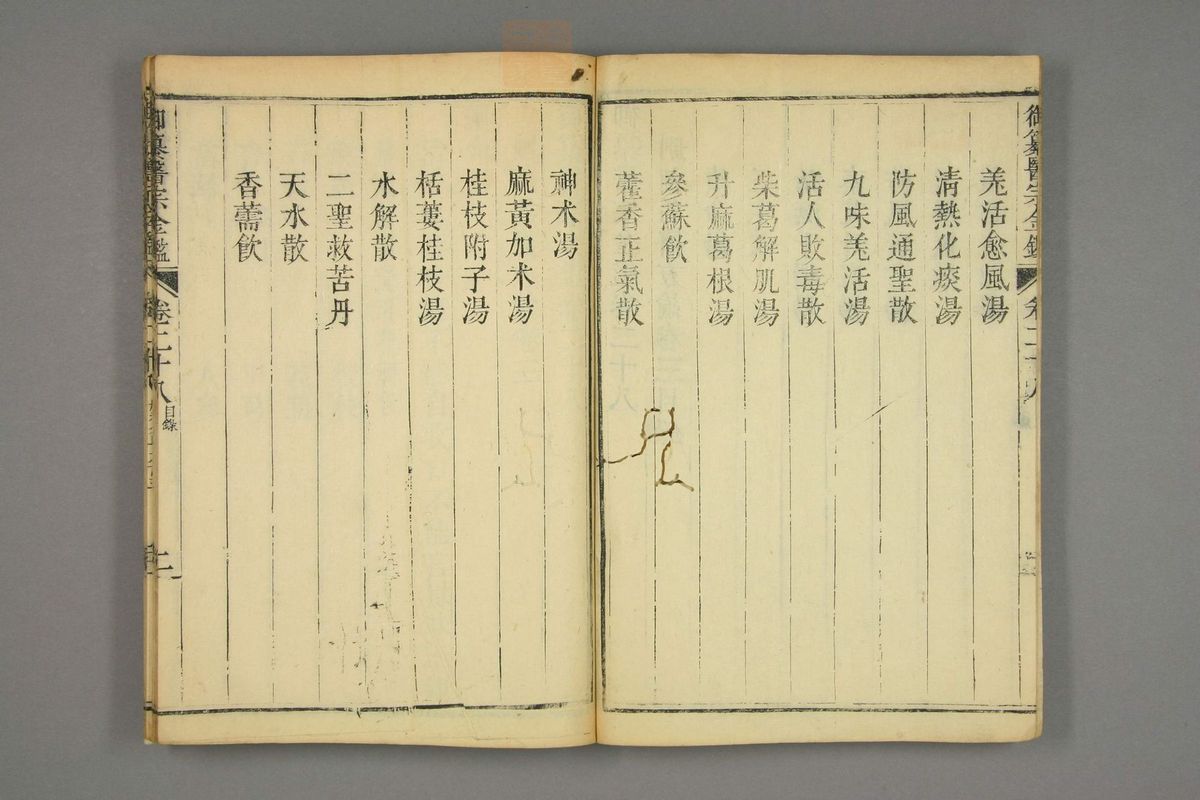 御纂醫宗金鑑
卷二十八
羗活愈風湯
淸熱化痰湯
防風通聖散
九味羗活湯
活人敗毒散
柴葛解肌湯
升麻葛根湯
參蘇飲
藿香正氣散
神朮湯
麻黃加朮湯
桂枝附子湯
栝蔞桂枝湯
水解散
二聖救苦丹
天水散
香薷飲
御纂醫宗金鑑
卷二十八
目錄
二